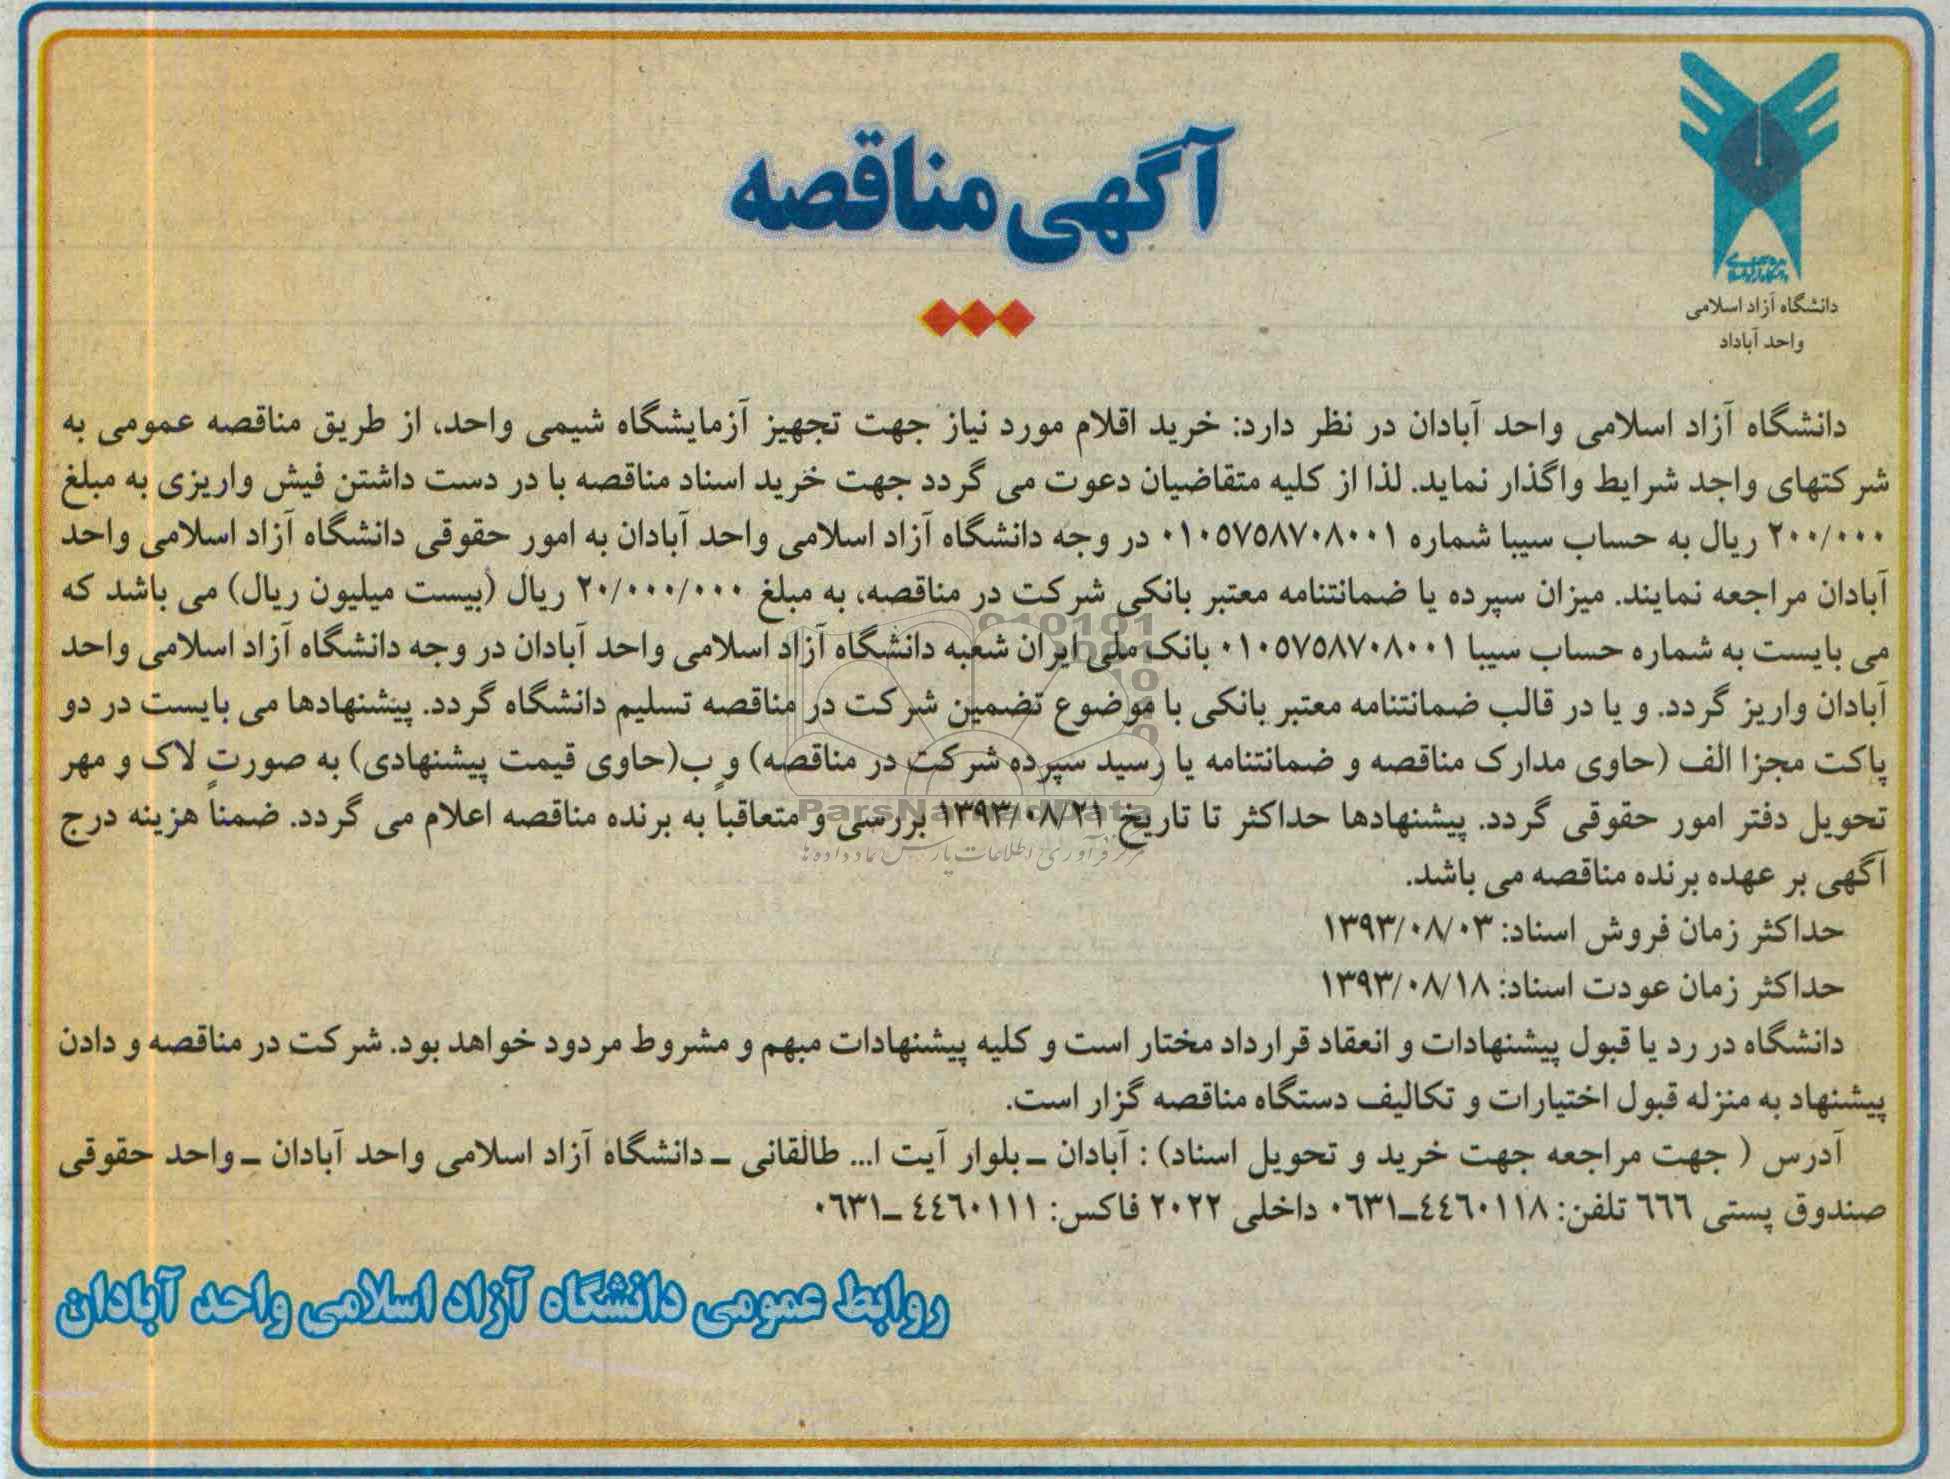 آگهی مناقصه
دانشگاه آزاد اسلامی
واحد آباداد
دانشگاه آزاد اسلامی واحد آبادان در نظر دارد: خرید اقلام مورد نیاز جهت تجهیز آزمایشگاه شیمی واحد، از طریق مناقصه عمومی به
شرکتهای واجد شرایط واگذار نماید. لذا از کلیه متقاضیان دعوت می گردد جهت خرید اسناد مناقصه با در دست داشتن فیش واریزی به مبلغ
۲۰۰/۰۰۰ ریال به حساب سیبا شماره ۰۱۰۵۷۵۸۷۰۸۰۰۱ در وجه دانشگاه آزاد اسلامی واحد آبادان به امور حقوقی دانشگاه آزاد اسلامی واحد
آبادان مراجعه نمایند. میزان سپرده یا ضمانتنامه معتبر بانکی شرکت در مناقصه، به مبلغ ۲۰/۰۰۰/۰۰۰ ریال (بیست میلیون ریال) می باشد که
می بایست به شماره حساب سیبا ۰۱۰۵۷۵۸۷۰۸۰۰۱ بانک ملی ایران شعبه دانشگاه آزاد اسلامی واحد آبادان در وجه دانشگاه آزاد اسلامی واحد
آبادان واریز گردد. و یا در قالب ضمانتنامه معتبر بانکی با موضوع تضمین شرکت در مناقصه تسلیم دانشگاه گردد. پیشنهادها می بایست در دو
پاکت مجزا الف (حاوی مدارک مناقصه و ضمانتنامه یا رسید سپرده شرکت در مناقصه) و ب(حاوی قیمت پیشنهادی) به صورت لاک و مهر
تحویل دفتر امور حقوقی گردد. پیشنهادها حداکثر تا تاریخ ۱۳۹۳/۰۸/۲۱ بررسی و متعاقباً به برنده مناقصه اعلام می گردد. ضمناً هزینه درج
آگهی بر عهده برنده مناقصه می باشد.
حداکثر زمان فروش اسناد: ۱۳۹۳/۰۸/۰۳
حداکثر زمان عودت اسناد: ۱۳۹۳/۰۸/۱۸
دانشگاه در رد یا قبول پیشنهادات و انعقاد قرارداد مختار است و کلیه پیشنهادات مبهم و مشروط مردود خواهد بود. شرکت در مناقصه و دادن
پیشنهاد به منزله قبول اختیارات و تکالیف دستگاه مناقصه گزار است.
آدرس ( جهت مراجعه جهت خرید و تحویل اسناد) : آبادان ـ بلوار آیت ا... طالقانی ـ دانشگاه آزاد اسلامی واحد آبادان ـ واحد حقوقی
صندوق پستی ٦٦٦ تلفن: ٤٤٦٠١١٨ـ٠٦٣١ داخلی ۲۰۲۲ فاکس: ٤٤٦٠١١١ ـ٠٦٣١
روابط عمومی دانشگاه آزاد اسلامی واحد آبادان
ParsNamadData
مرکز فرآوری اطلاعات پارس نماد داده ها